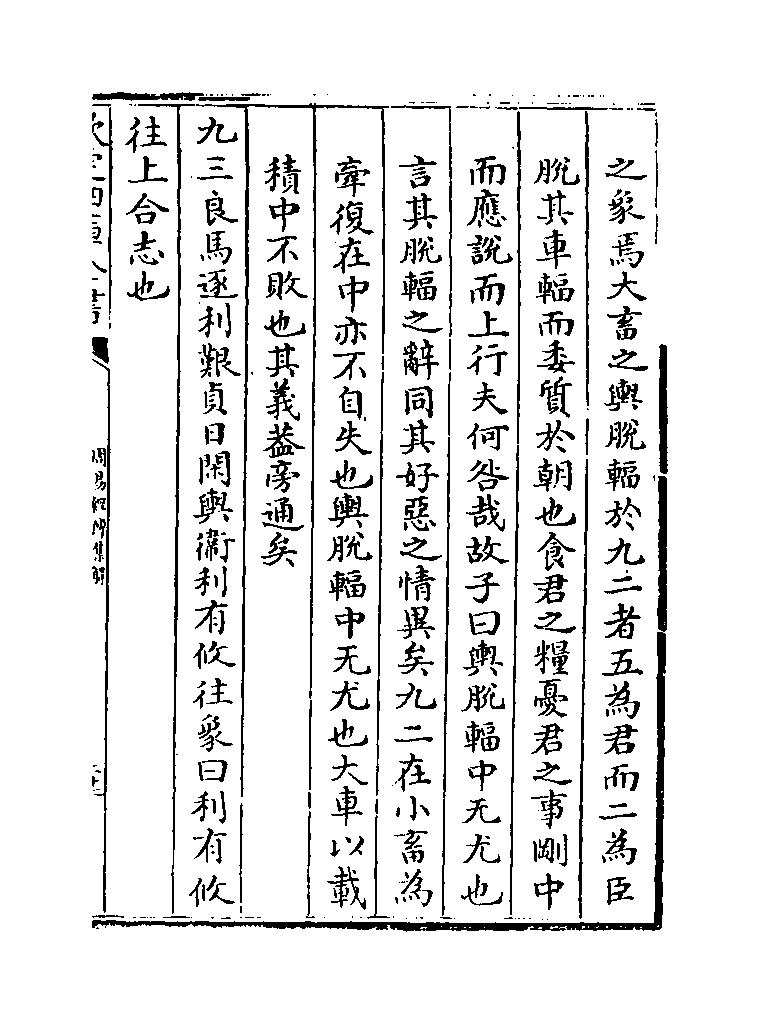 之象焉大畜之輿脫輻於九二者五為君而二為臣
脫其車輻而委質於朝也食君之糧憂君之事剛中
而應說而上行夫何咎哉故子曰輿脫輻中无尤也
言其脫輻之辭同其好惡之情異矣九二在小畜為
牽復在中亦不自失也輿脫輻中无尤也大車以載
積中不敗也其義葢旁通矣
九三良馬逐利艱貞日閑輿衞利有攸往象曰利有攸
往上合志也
欽定四庫全書
周易經傳集解